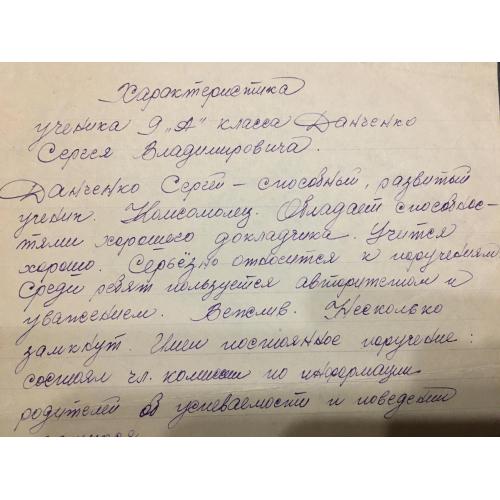 Характеристика
ученика 9 „А" класса Данченко
Сергея Владимировича.
Данченко Сергей – способный, развитый
ученик. Комсомолец. Обладает способнос-
тями хорошего докладчика. Учится
хорошо. Серьёзно относится к поручениям
Среди ребят пользуется авторитетом и
уважением. Вежлив. Несколько
замкнут. Имел постоянное поручение:
состоял чл. комиссии по информации
родителей об успеваемости и поведении